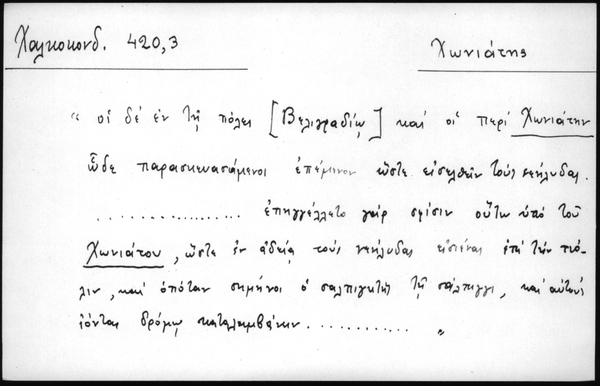 Χαλκοκονδ. 420,3
Χωνιάτης
“ οἱ δέ ἐν τῇ πόλει [Βελιγραδίῳ] καί οἱ περί Χωνιάτην
ὧδε παρασκευασάμενοι ἐπέμενον ὥστε εἰσελθεῖν τούς νεήλυδας.
................ ἐπηγγέλλετο γάρ σφίσιν οὕτω ὑπό τοῦ
Χωνιάτου, ὥστε ἐν ἀδείᾳ τούς νεήλυδας εἰσιέναι ἐπί τήν πό-
λιν, καί ὁπόταν σημήνοι ὁ σαλπιγκτής τῇ σάλπιγγι, καί αὐτούς
ἰόντας δρόμῳ καταλαμβάνειν ............ „